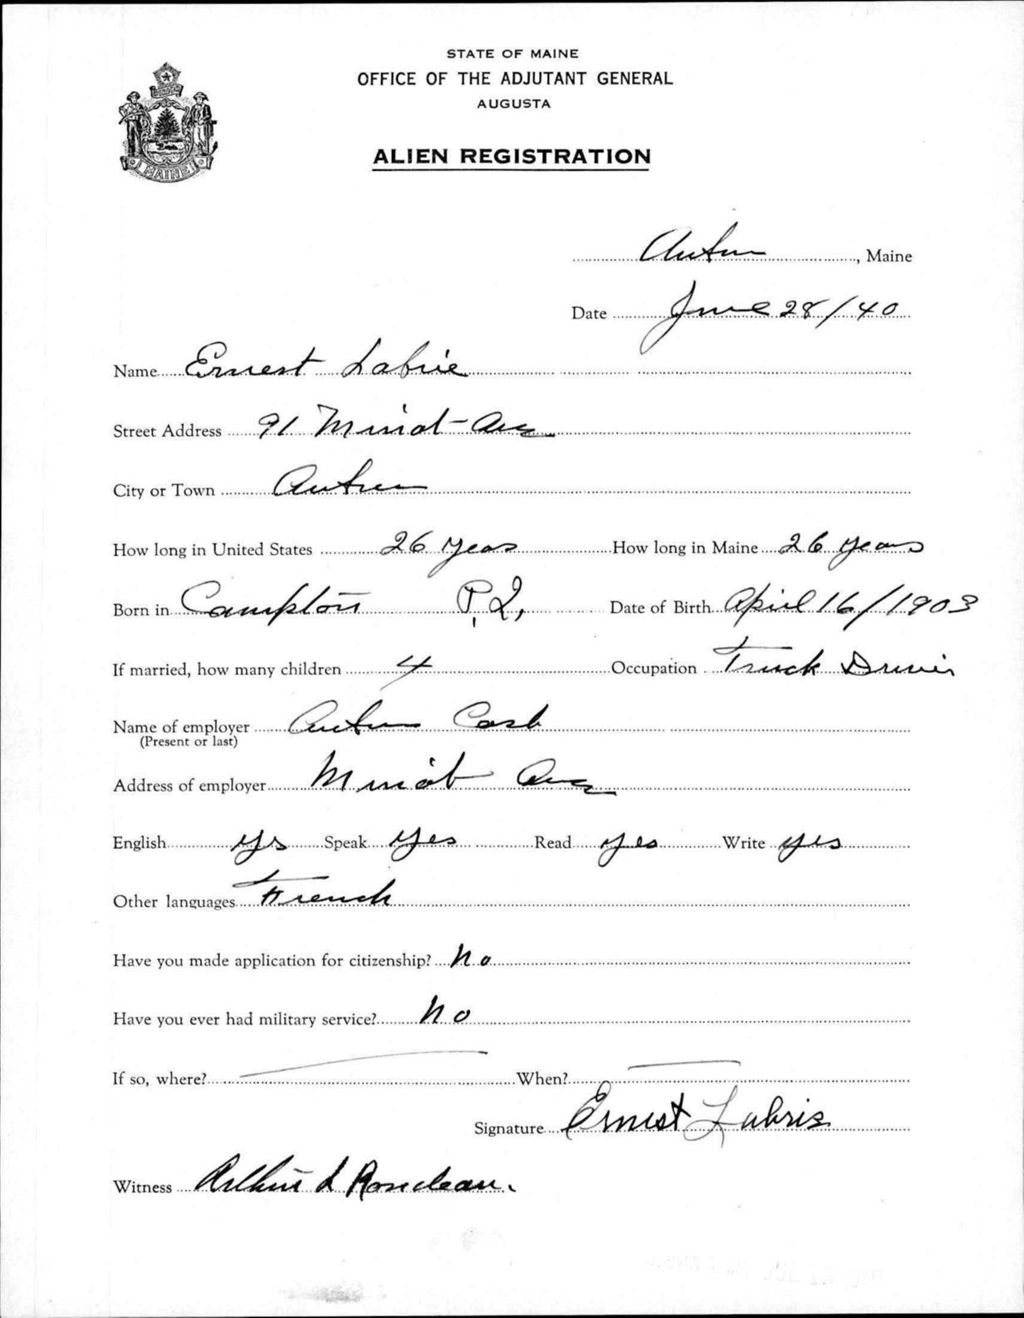 STATE OF MAINE
OFFICE OF THE ADJUTANT GENERAL
AUGUSTA
MAINE
ALIEN REGISTRATION
Auburn, Maine
Date June 28/40
Name Ernest Labrie
Street Address 91 Minot Ave
City or Town Auburn
How long in United States 26 years How long in Maine 26 years
Born in Compton P.Q. Date of Birth April 16/1903
If married, how many children 4 Occupation Truck Driver
Name of employer Auburn
(Present or last)
Address of employer Minot Ave
English yes Speak yes Read yes Write yes
Other languages French
Have you made application for citizenship? No
Have you ever had military service? No
If so, where? When?
Signature Ernest Labrie
Witness Arthur L